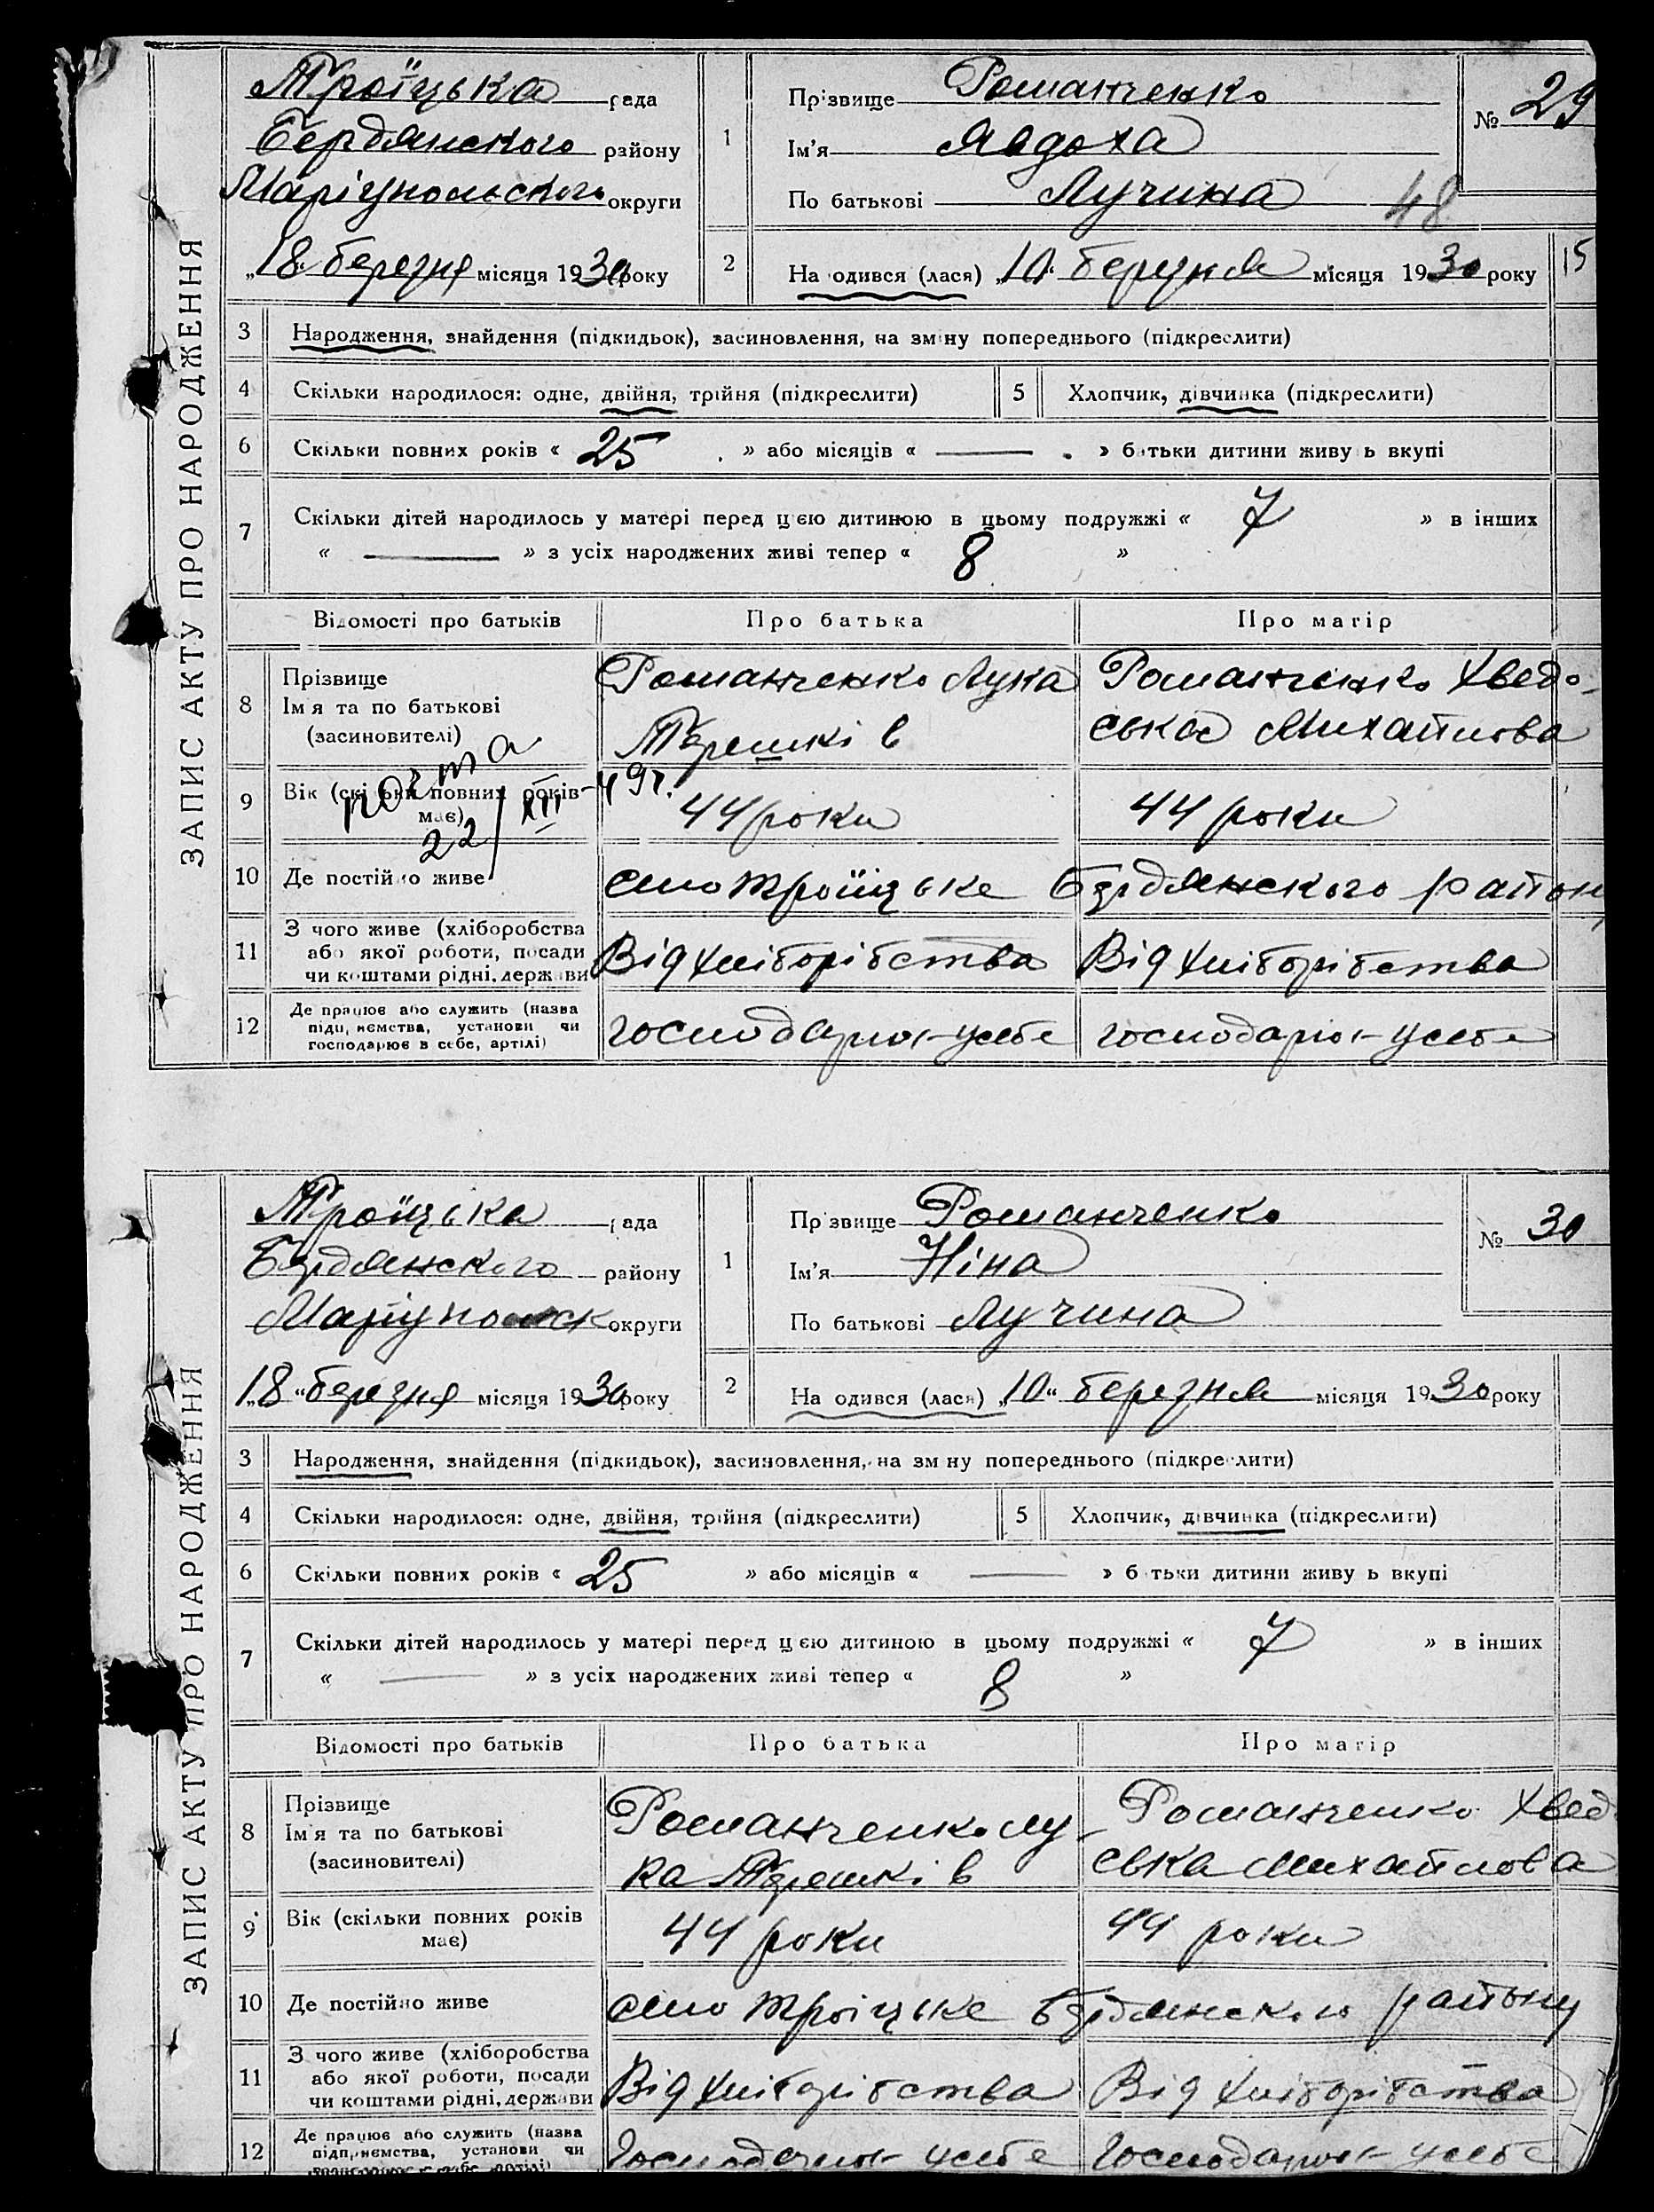 ЗАПИС АКТУ ПРО НАРОДЖЕННЯ
Троїцька рада
Бердянского району
Маріупольского округи
„18“ березня місяця 1930 року
1
Прізвище Романченко
Ім'я Явдоха
По батькові Лучина
№ 29
48
2
На одився (лася) „10“ березня місяця 1930 року
15
3 Народження, знайдення (підкидьок), засиновлення, на зміну попереднього (підкреслити)
4 Скільки народилося: одне, двійня, трійня (підкреслити)
5 Хлопчик, дівчинка (підкреслити)
6 Скільки повних років « 25 » або місяців « — » батьки дитини живу ь вкупі
7 Скільки дітей народилось у матері перед цією дитиною в цьому подружжі « 7 » в інших
« — » з усіх народжених живі тепер « 8 »
Відомості про батьків
Про батька
Про матір
8 Прізвище
Ім'я та по батькові
(засиновителі)
Романченко Лука
Терешків
Романченко Хведо-
ська Михайлова
9 Вік (скільки повних років
має)
22/XII-49г.
44 роки
44 роки
10 Де постійно живе
село Троїцьке Бердянского району
11 З чого живе (хліборобства
або якої роботи, посади
чи коштами рідні, держави
Від хліборібства
Від хліборібства
12 Де працює або служить (назва
підприємства, установи чи
господарює в себе, артілі)
господарює усебе
господарює усебе
ЗАПИС АКТУ ПРО НАРОДЖЕННЯ
Троїцька рада
Бердянского району
Маріупольск округи
„18“ березня місяця 1930 року
1
Прізвище Романченко
Ім'я Ніна
По батькові Лучина
№ 30
2
На одився (лася) „10“ березня місяця 1930 року
3 Народження, знайдення (підкидьок), засиновлення, на зміну попереднього (підкреслити)
4 Скільки народилося: одне, двійня, трійня (підкреслити)
5 Хлопчик, дівчинка (підкреслити)
6 Скільки повних років « 25 » або місяців « — » батьки дитини живу ь вкупі
7 Скільки дітей народилось у матері перед цією дитиною в цьому подружжі « 7 » в інших
« — » з усіх народжених живі тепер « 8 »
Відомості про батьків
Про батька
Про матір
8 Прізвище
Ім'я та по батькові
(засиновителі)
Романченко Лу-
ка Терешків
Романченко Хведо
ська Михайлова
9 Вік (скільки повних років
має)
44 роки
44 роки
10 Де постійно живе
село Троїцьке Бердянского району
11 З чого живе (хліборобства
або якої роботи, посади
чи коштами рідні, держави
Від хліборібства
Від хліборібства
12 Де працює або служить (назва
підприємства, установи чи
господарює в себе, артілі)
Господарює усебе
Господарює усебе